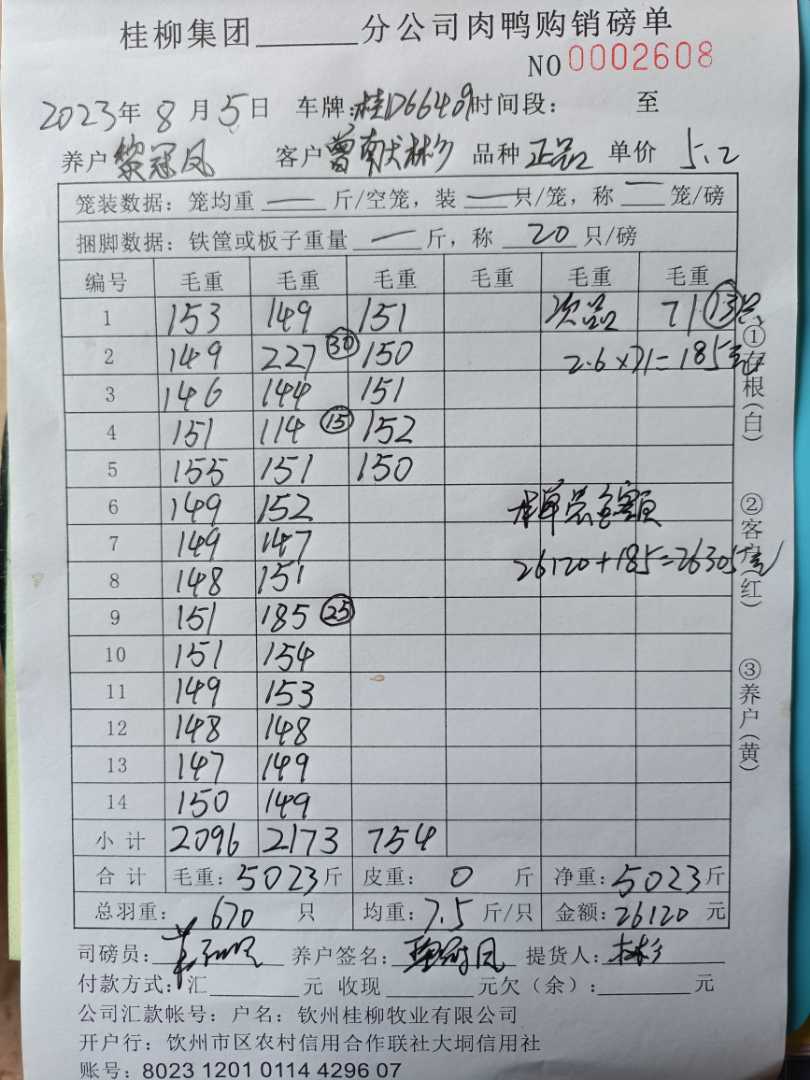 桂柳集团______分公司肉鸭购销磅单
NO 0002608
2023年8月5日 车牌:桂D66409时间段: 至
养户黎冠凤 客户曾献林杉 品种 正品 单价 5.2
笼装数据：笼均重 — 斤/空笼，装 — 只/笼，称 — 笼/磅
捆脚数据：铁筐或板子重量 — 斤，称 20 只/磅
编号 毛重 毛重 毛重 毛重 毛重 毛重
1 153 149 151 次品 71 ⑬只
2 149 227 ㉚ 150 2.6×71=185元
3 146 144 151
4 151 114 ⑮ 152
5 155 151 150
6 149 152 本单总金额
7 149 147
8 148 151 26120+185=26305元
9 151 185 ㉕
10 151 154
11 149 153
12 148 148
13 147 149
14 150 149
小计 2096 2173 754
合计 毛重: 5023斤 皮重: 0 斤 净重: 5023斤
总羽重: 670 只 均重: 7.5 斤/只 金额: 26120 元
司磅员: 养户签名: 黎冠凤 提货人: 林杉
付款方式: 汇______元 收现______元欠（余）:______元
公司汇款帐号：户名：钦州桂柳牧业有限公司
开户行：钦州市区农村信用合作联社大垌信用社
账号：8023 1201 0114 4296 07
①存根(白)
②客户(红)
③养户(黄)